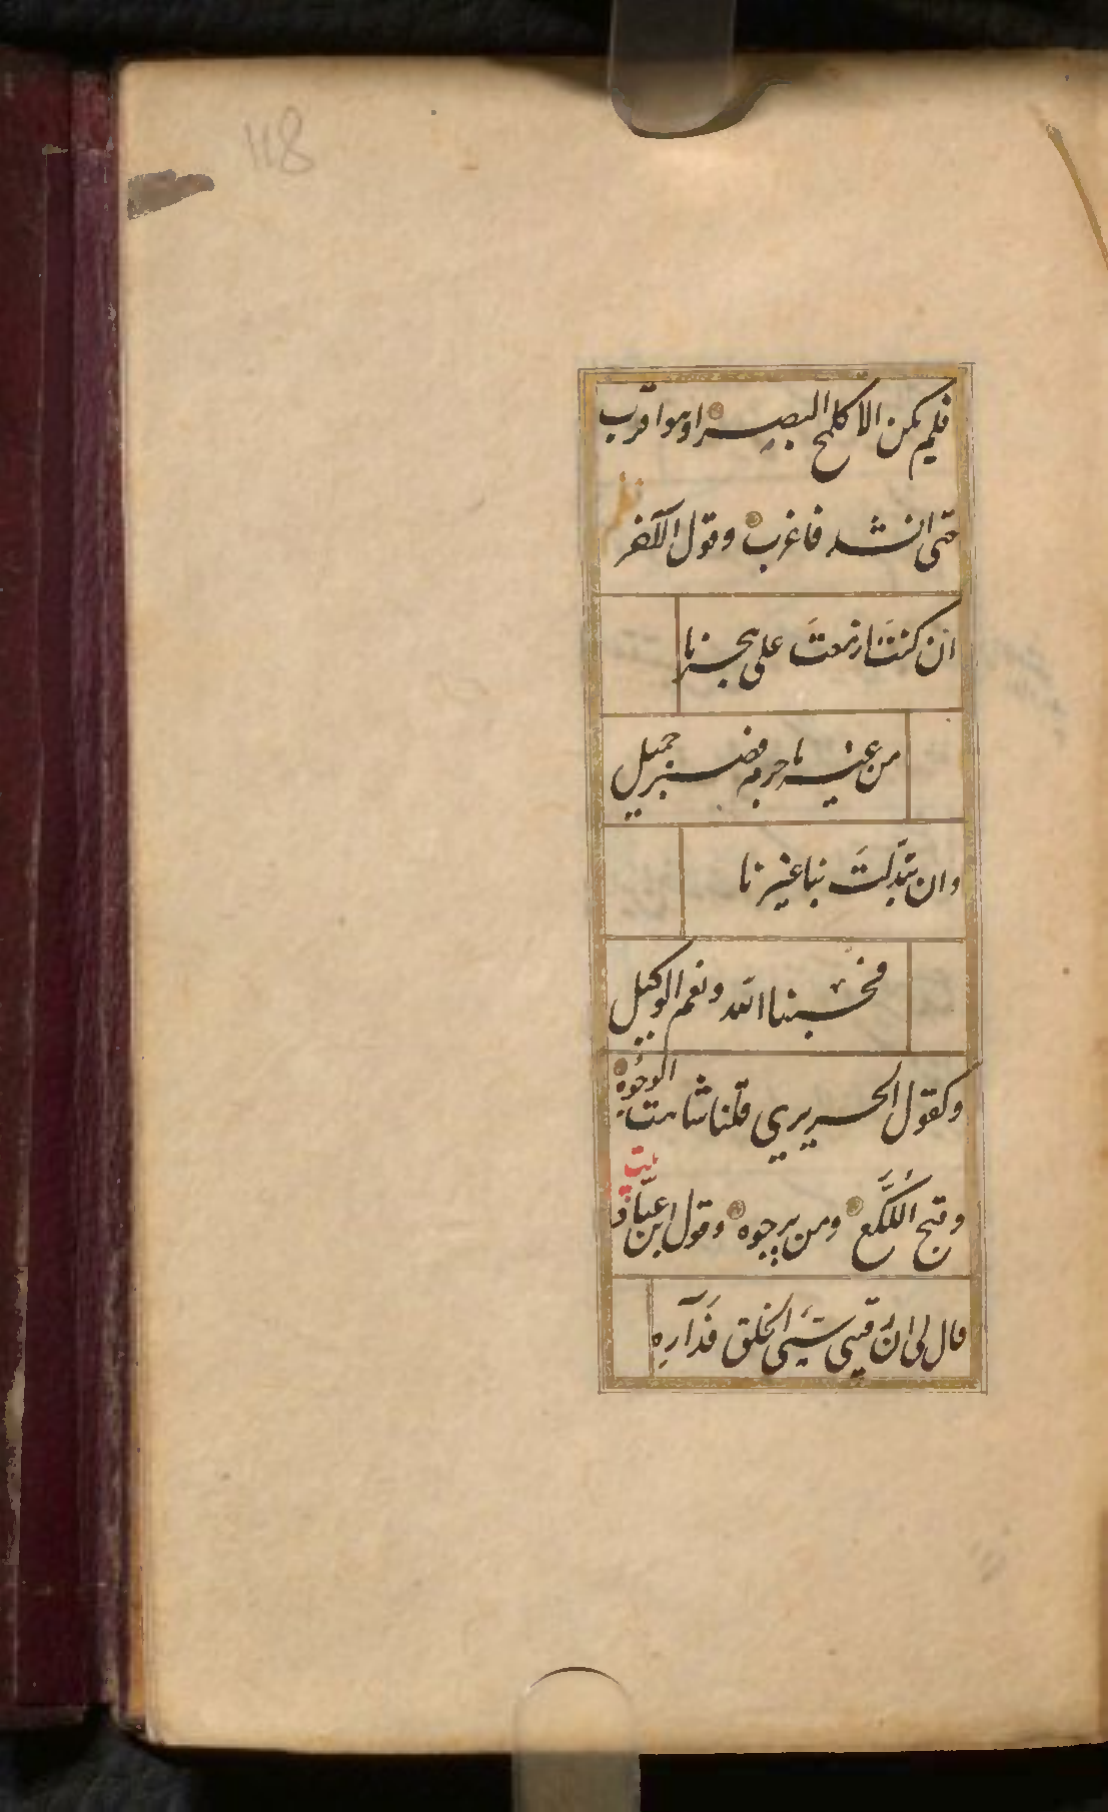 118
فلم يكن الا كلمح البصر او هو اقرب
حتى انشد فاغرب وقول الآخر
نظم
ان كنتَ ازمعتَ على هجرنا
من غير ما جرم فصبر جميل
وان تبدّلتَ بنا غيرنا
فحسبنا الله ونعم الوكيل
وكقول الحريري قلنا شاهت الوجوه
وقبح اللُّكَّع ومن يرجوه وقول ابن عبّاد
بيت
قال لى انّ رقيبى سَيّئ الخلق فَدَارِهِ